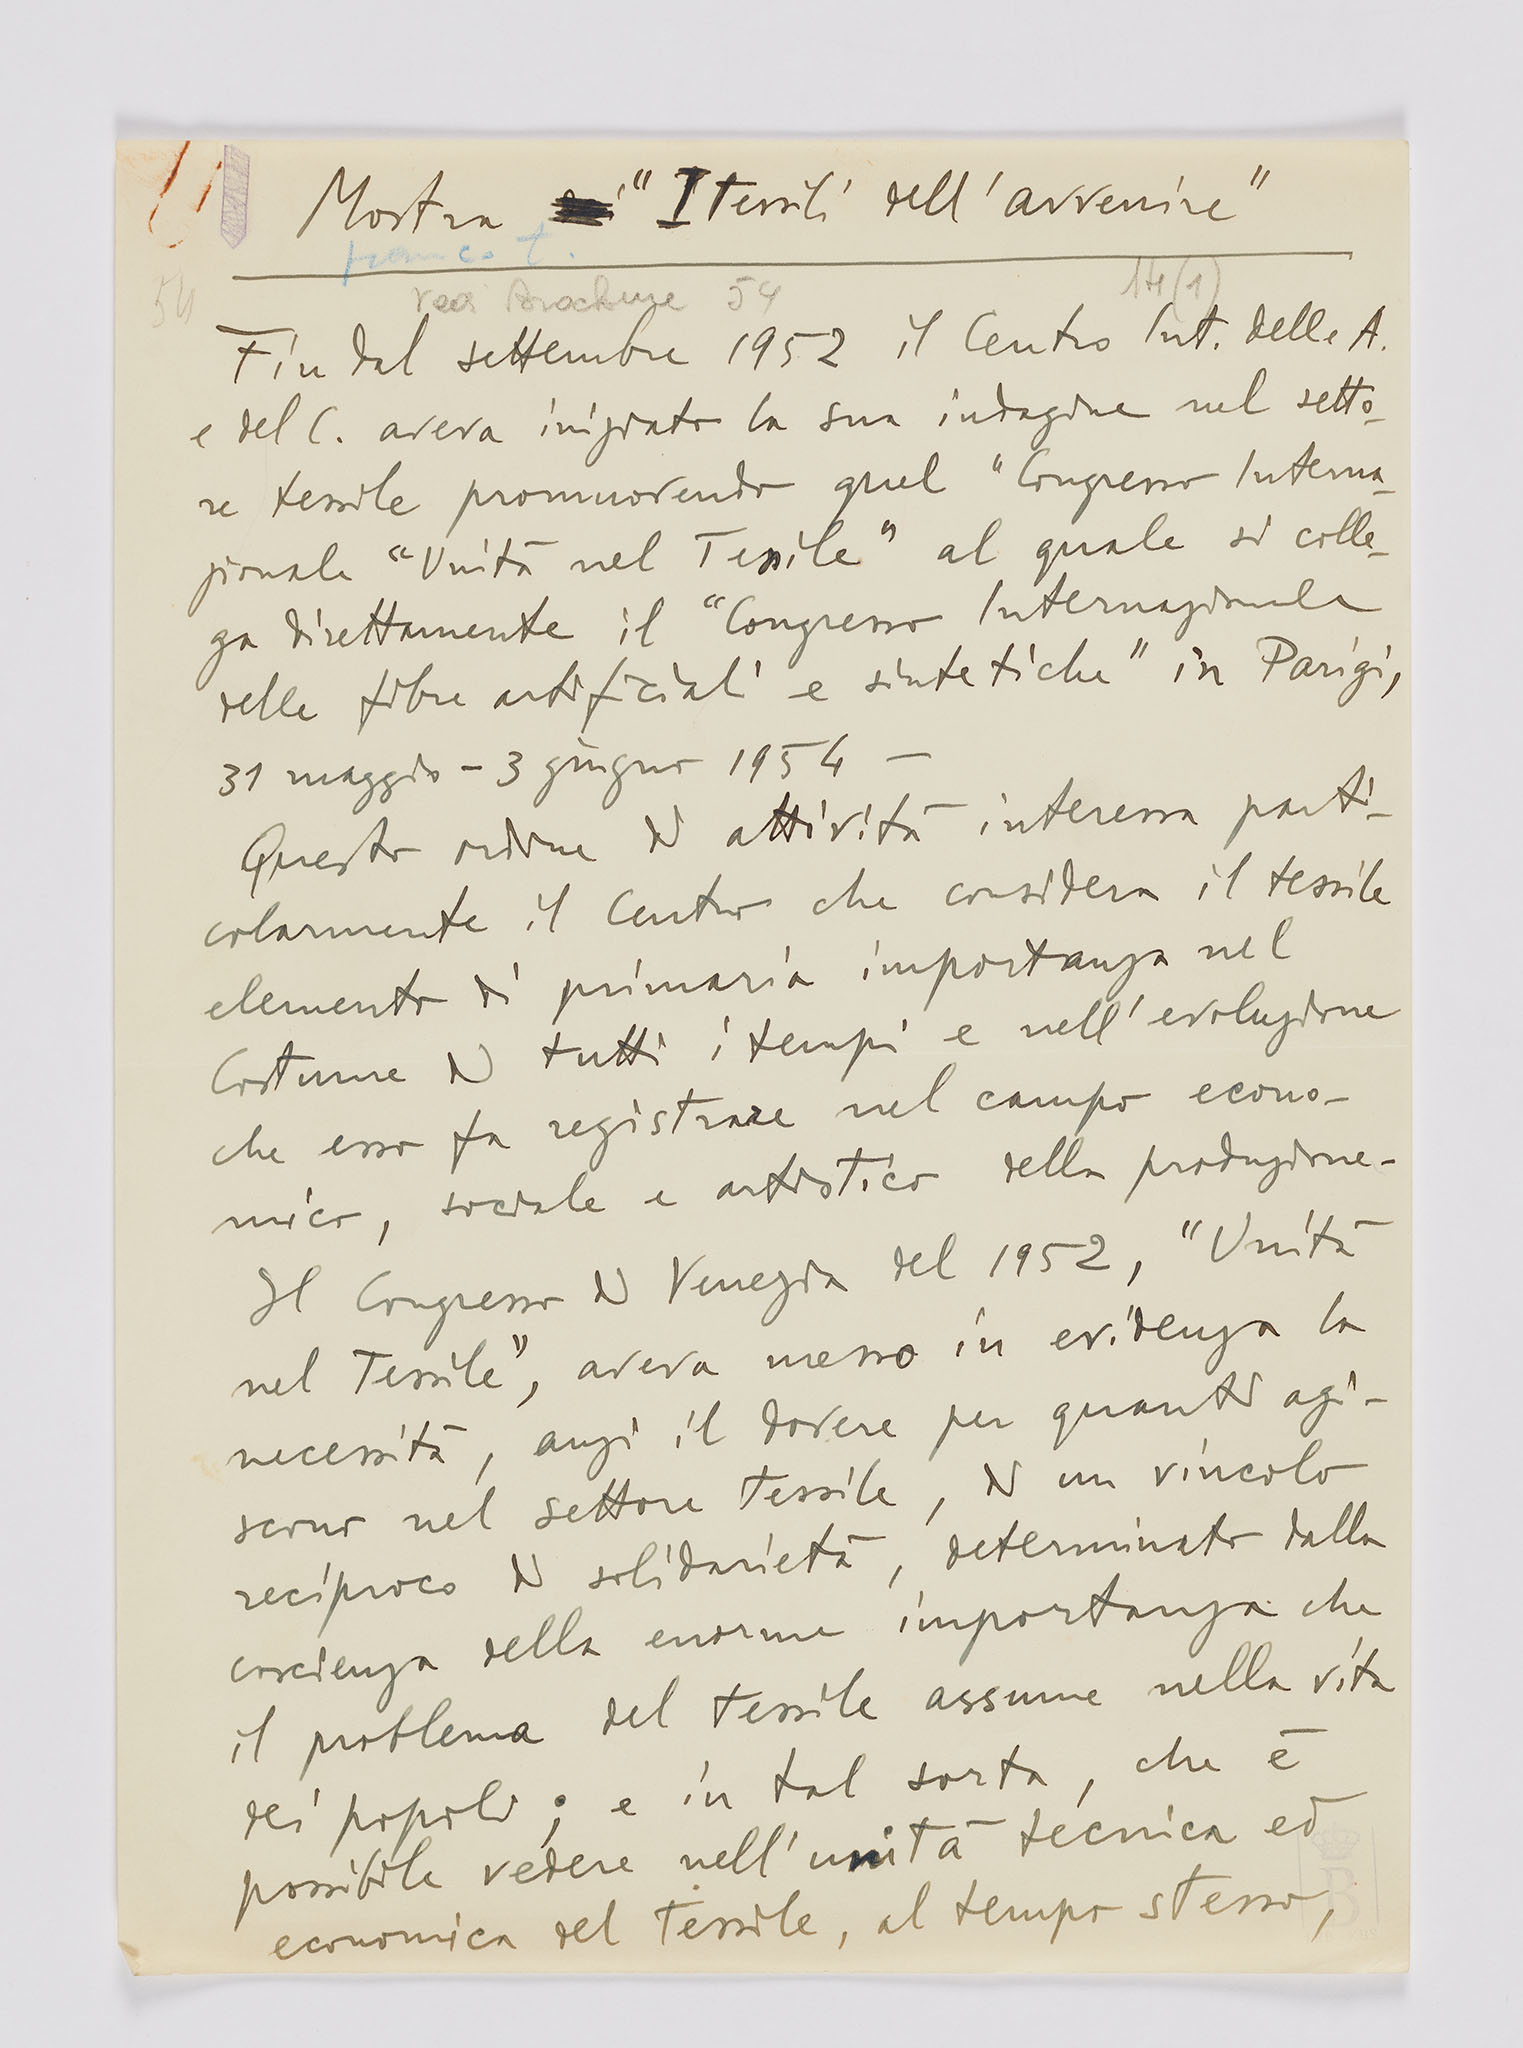 Mostra "I tessili dell'avvenire"
franco t.
54
vedi Brochure 54
14(1)
Fin dal settembre 1952 il Centro Int. delle A.
e del C. aveva iniziato la sua indagine nel setto-
re tessile promuovendo quel "Congresso Interna-
zionale "Unità nel Tessile" al quale si colle-
ga direttamente il "Congresso Internazionale
delle fibre artificiali e sintetiche" in Parigi,
31 maggio - 3 giugno 1954 -
Questo ordine di attività interessa parti-
colarmente il Centro che considera il tessile
elemento di primaria importanza nel
Costume di tutti i tempi e nell'evoluzione
che esso fa registrare nel campo econo-
mico, sociale e artistico della produzione -
Il Congresso di Venezia del 1952, "Unità
nel Tessile", aveva messo in evidenza la
necessità, anzi il dovere per quanti agi-
scono nel settore tessile, di un vincolo
reciproco di solidarietà, determinato dalla
coscienza della enorme importanza che
il problema del tessile assume nella vita
dei popoli; e in tal sorta, che è
possibile vedere nell'unità tecnica ed
economica del tessile, al tempo stesso,
B